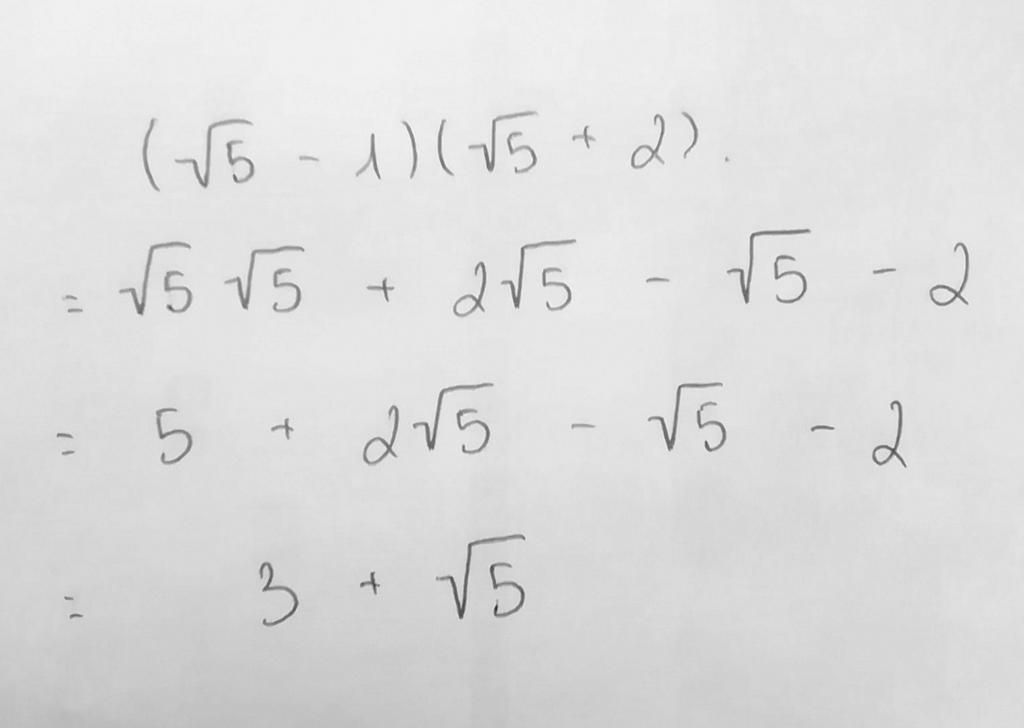 (√5 - 1)(√5 + 2).
= √5 √5 + 2√5 - √5 - 2
= 5 + 2√5 - √5 - 2
= 3 + √5